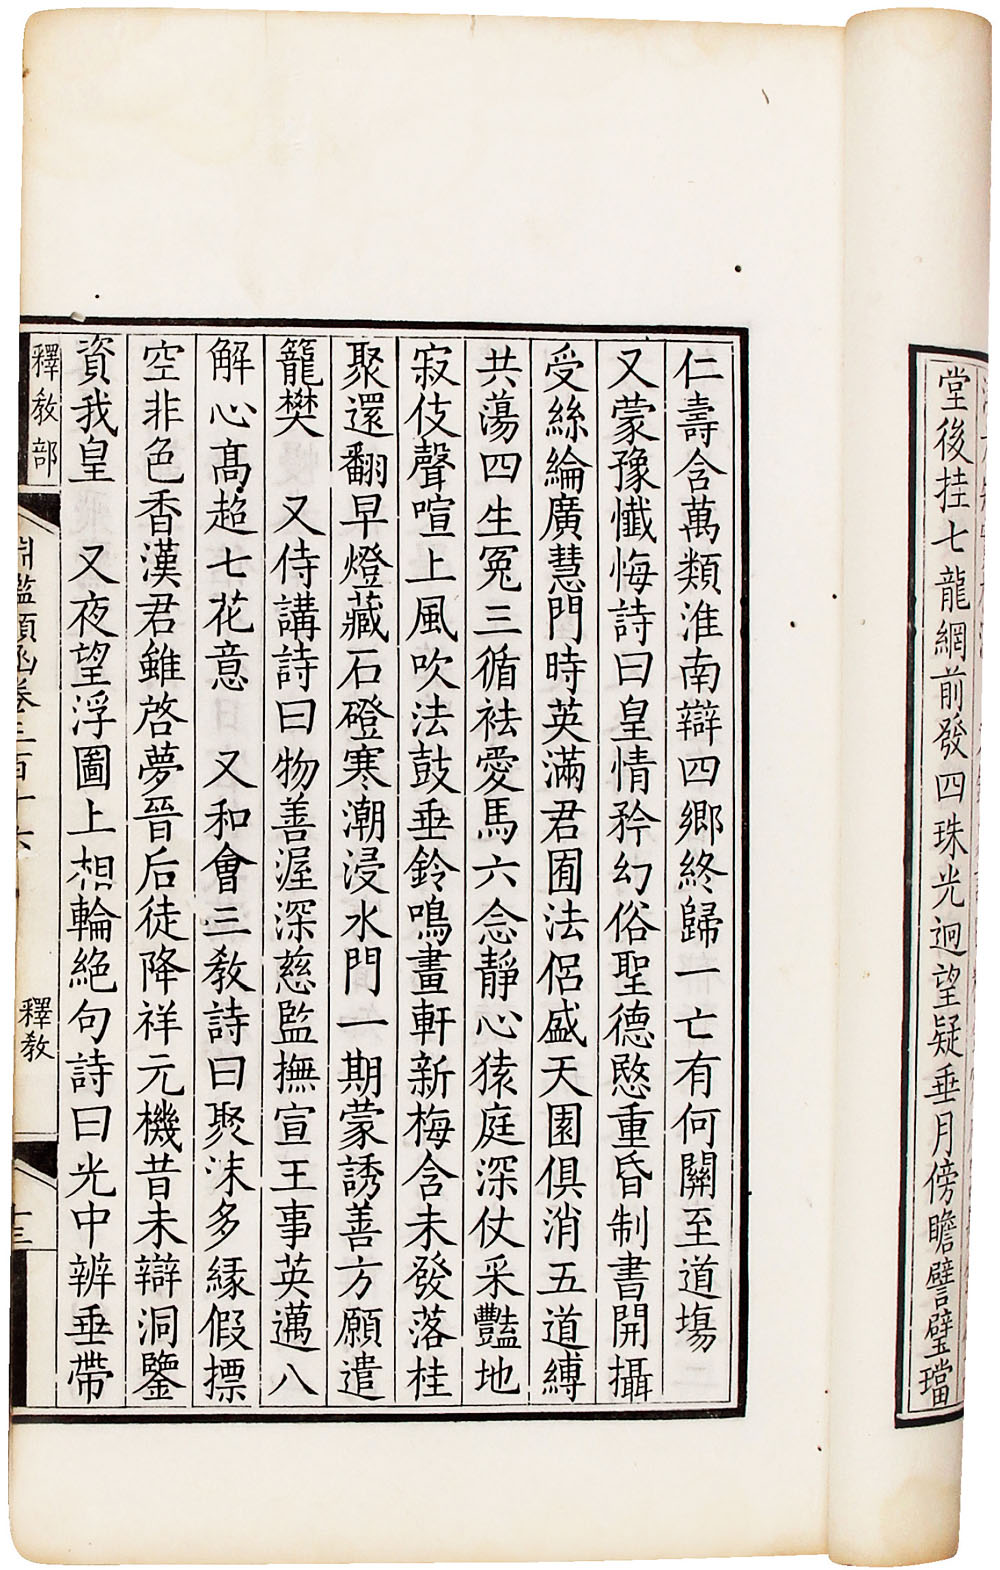 堂後挂七龍網前發四珠光迥望疑垂月傍瞻譬璧璫
仁壽含萬類淮南辯四鄉終歸一亡有何關至道場
又蒙豫懺悔詩曰皇情矜幻俗聖德愍重昏制書開攝
受絲綸廣慧門時英滿君囿法侶盛天園俱消五道縛
共蕩四生冤三循袪愛馬六念靜心猿庭深仗采豔地
寂伎聲喧上風吹法鼓垂鈴鳴畫軒新梅含未發落桂
聚還翻早燈藏石磴寒潮浸水門一期蒙誘善方願遣
籠樊　又侍講詩曰物善渥深慈監撫宣王事英邁八
解心高超七花意　又和會三教詩曰聚沫多緣假標
空非色香漢君雖啓夢晉后徒降祥元機昔未辯洞鑒
資我皇　又夜望浮圖上相輪絕句詩曰光中辨垂帶
釋教部
淵鑑類函卷三百十六
釋教
十三